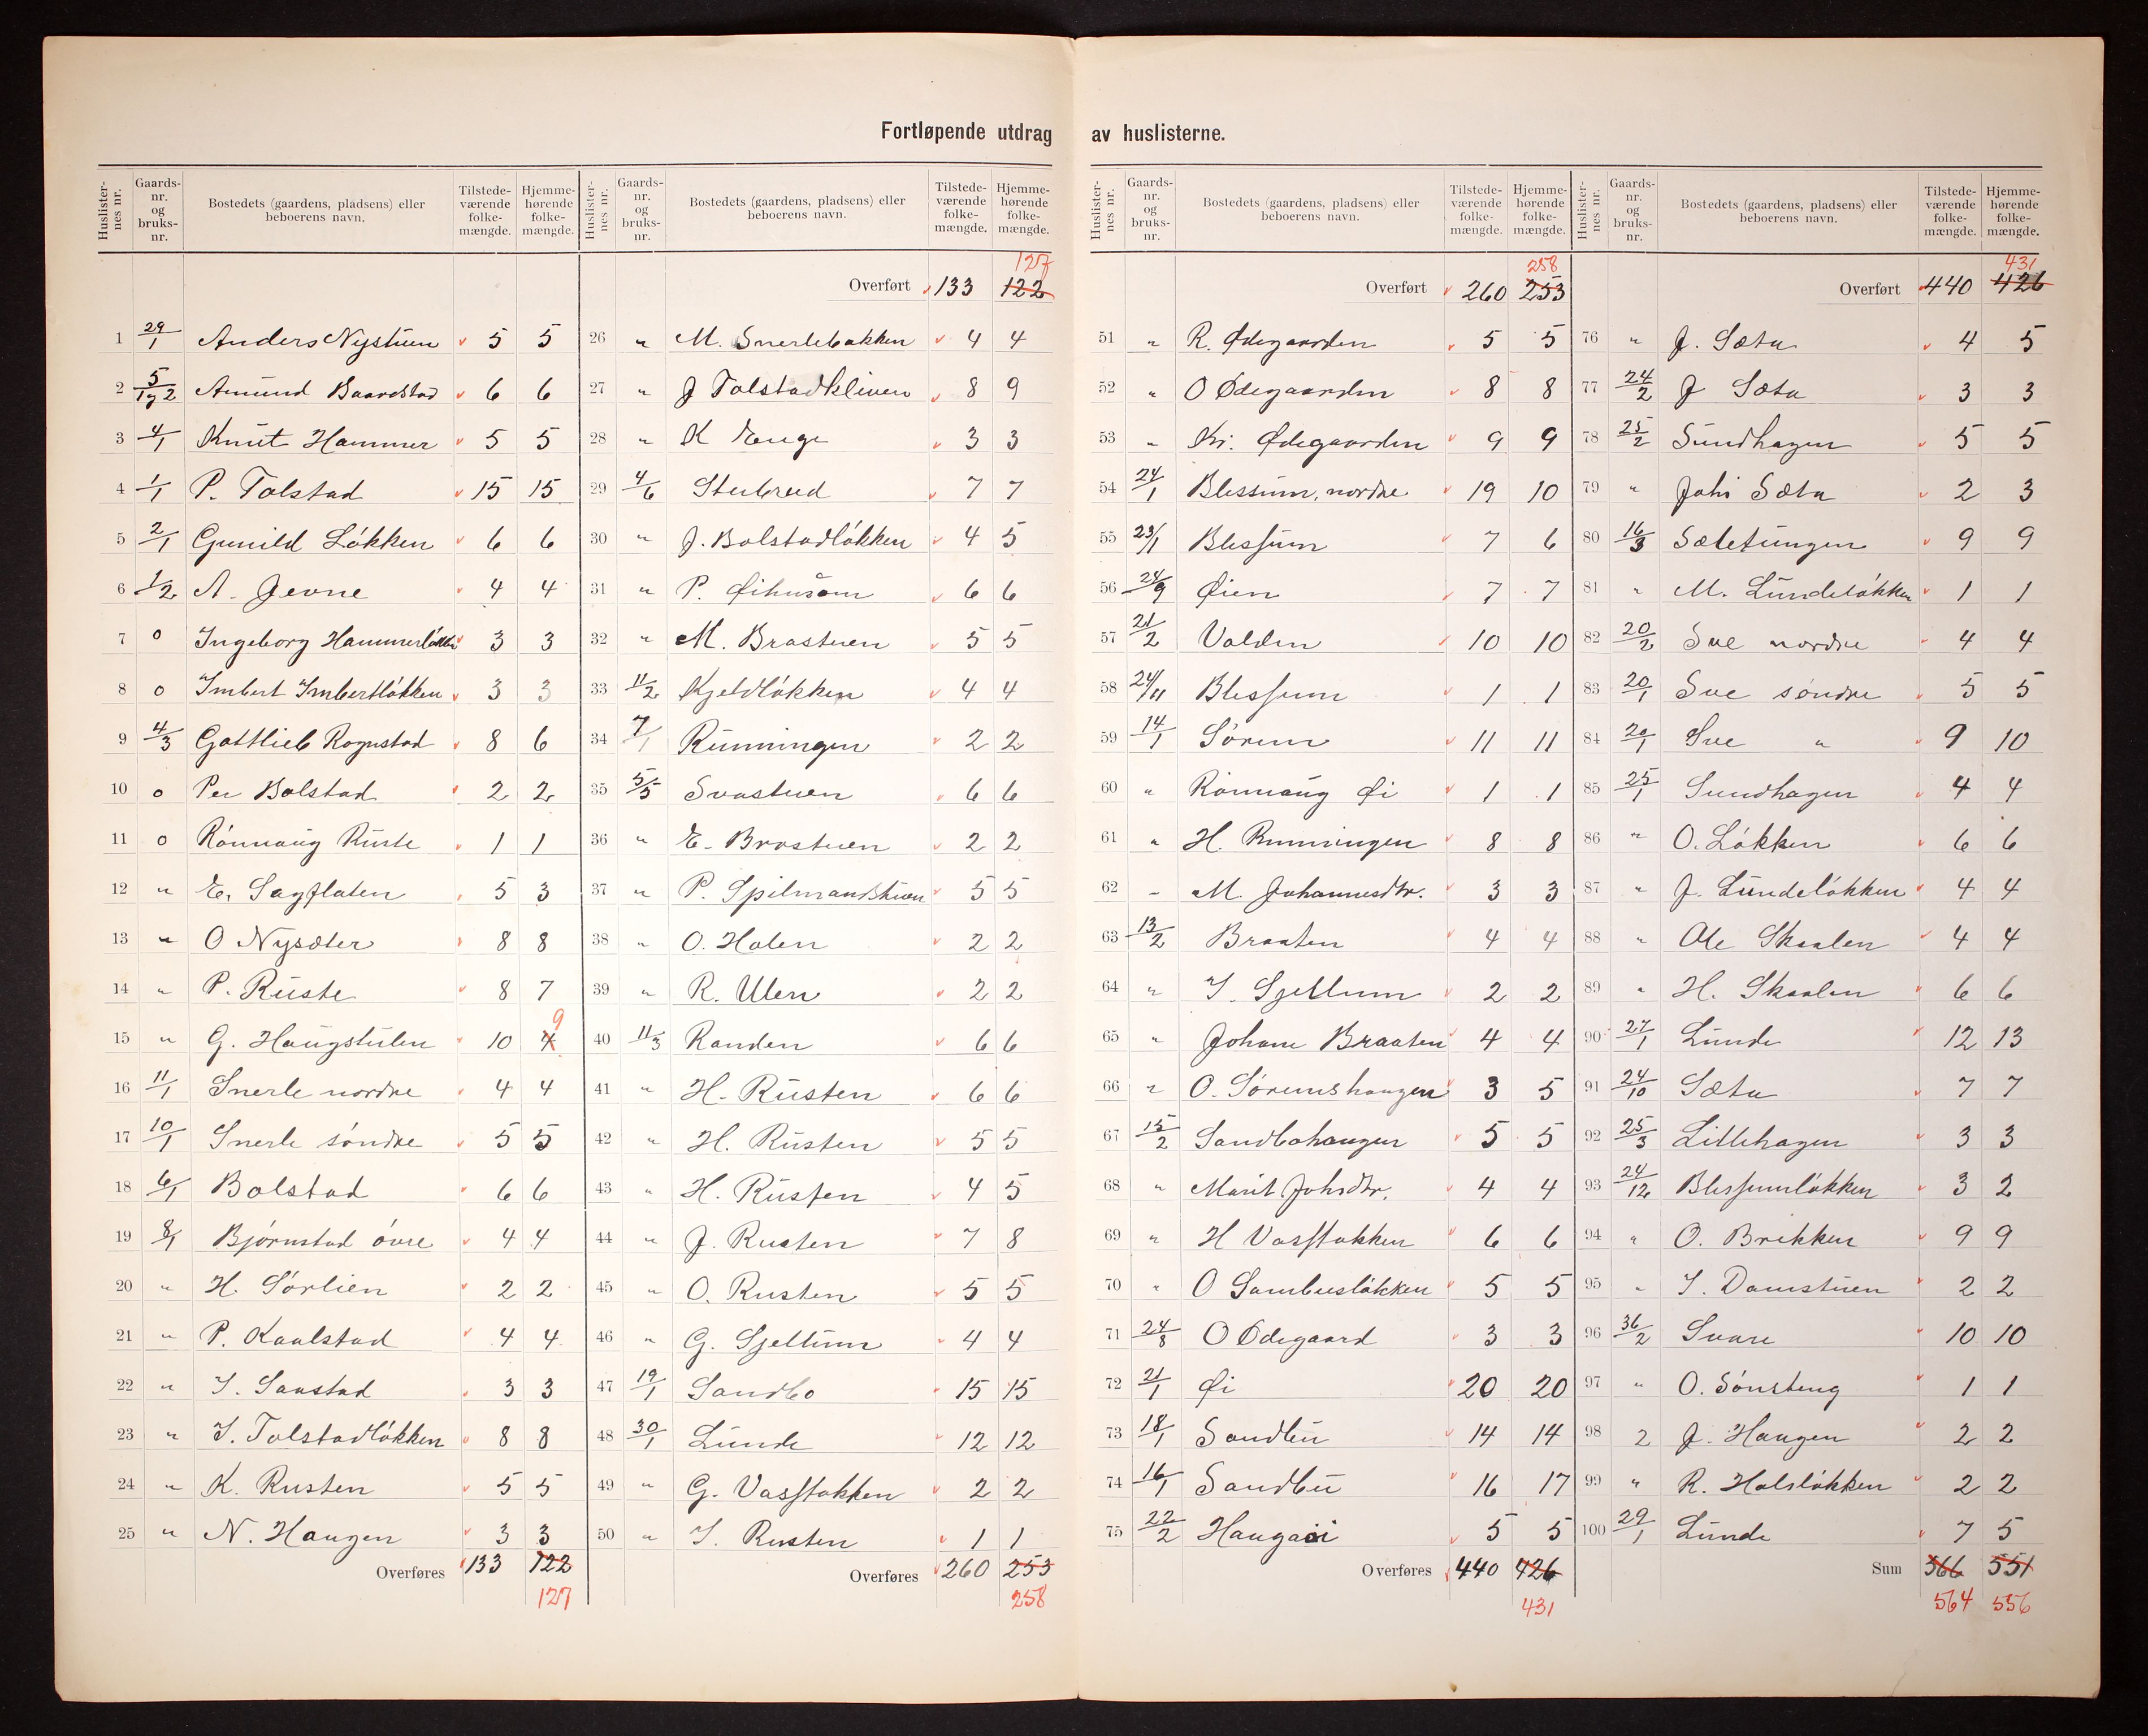 Fortløpende utdrag av huslisterne.
Huslisternes nr. Gaards-nr. og bruks-nr. Bostedets (gaardens, pladsens) eller beboerens navn. Tilstedeværende folkemængde. Hjemmehørende folkemængde.
1 29/1 Anders Nystuen 5 5
2 5/1 og 2 Amund Baardstad 6 6
3 4/1 Knut Hammer 5 5
4 1/1 P. Tolstad 15 15
5 2/1 Gunild Løkken 6 6
6 1/2 A. Jevne 4 4
7 o Ingeborg Hammerløkken 3 3
8 o Imbert Imbertløkken 3 3
9 4/3 Gottlieb Rognstad 8 6
10 o Per Bolstad 2 2
11 o Rønnaug Ruste 1 1
12 " E. Sagflaten 5 3
13 " O Nysæter 8 8
14 " P. Ruste 8 7
15 " G. Haugstulen 10 4 9
16 11/1 Snerle nordre 4 4
17 10/1 Snerle søndre 5 5
18 6/1 Bolstad 6 6
19 8/1 Bjørnstad øvre 4 4
20 " H. Sørlien 2 2
21 " P. Kaalstad 4 4
22 " I. Saustad 3 3
23 " I. Tolstadløkken 8 8
24 " K. Rusten 5 5
25 " N. Haugen 3 3
Overføres 133 122
127
Huslisternes nr. Gaards-nr. og bruks-nr. Bostedets (gaardens, pladsens) eller beboerens navn. Tilstedeværende folkemængde. Hjemmehørende folkemængde.
127
Overført 133 122
26 " M. Snerlebakken 4 4
27 " J Tolstadkliven 8 9
28 " K Enge 3 3
29 4/6 Stubrud 7 7
30 " J. Bolstadløkken 4 5
31 " P. Øihusom 6 6
32 " M. Brostuen 5 5
33 11/2 Kjeldløkken 4 4
34 7/1 Runningen 2 2
35 5/5 Svastuen 6 6
36 " E. Brostuen 2 2
37 " P. Spilmandstuen 5 5
38 " O. Holen 2 2
39 " R. Ulen 2 2
40 11/3 Randen 6 6
41 " H. Rusten 6 6
42 " H. Rusten 5 5
43 " H. Rusten 4 5
44 " J. Rusten 7 8
45 " O. Rusten 5 5
46 " G. Sjellum 4 4
47 19/1 Sandbo 15 15
48 30/1 Lunde 12 12
49 " G. Vasstakken 2 2
50 " I. Rusten 1 1
Overføres 260 253
258
Huslisternes nr. Gaards-nr. og bruks-nr. Bostedets (gaardens, pladsens) eller beboerens navn. Tilstedeværende folkemængde. Hjemmehørende folkemængde.
258
Overført 260 253
51 " R. Ødegaarden 5 5
52 " O Ødegaarden 8 8
53 " Kr. Ødegaarden 9 9
54 24/1 Blessum, nordre 19 10
55 23/1 Blessum 7 6
56 24/9 Øien 7 7
57 21/2 Volden 10 10
58 24/11 Blessum 1 1
59 14/1 Sørem 11 11
60 " Rønnaug Øi 1 1
61 " H. Runningen 8 8
62 – M. Johannesdtr. 3 3
63 13/2 Braaten 4 4
64 " I. Sjellum 2 2
65 " Johane Braaten 4 4
66 " O. Søremshaugen 3 5
67 15/2 Sandbohaugen 5 5
68 " Marit Johsdtr. 4 4
69 " H Vasstakken 6 6
70 " O Sambusløkken 5 5
71 24/8 O Ødegaard 3 3
72 21/1 Øi 20 20
73 18/1 Sandbu 14 14
74 16/1 Sandbu 16 17
75 22/2 Haugaøi 5 5
Overføres 440 426
431
Huslisternes nr. Gaards-nr. og bruks-nr. Bostedets (gaardens, pladsens) eller beboerens navn. Tilstedeværende folkemængde. Hjemmehørende folkemængde.
431
Overført 440 426
76 " J. Sæta 4 5
77 24/2 J Sæta 3 3
78 25/2 Sundhagen 5 5
79 " Johs Sæta 2 3
80 16/3 Sæletungen 9 9
81 " M. Lundeløkken 1 1
82 20/2 Sve nordre 4 4
83 20/1 Sve søndre 5 5
84 20/1 Sve " 9 10
85 25/1 Sundhagen 4 4
86 " O. Løkken 6 6
87 " J. Lundeløkken 4 4
88 " Ole Skaalen 4 4
89 " H. Skaalen 6 6
90 27/1 Lunde 12 13
91 24/10 Sæta 7 7
92 25/3 Lillehagen 3 3
93 24/12 Blessumløkken 3 2
94 " O. Brekken 9 9
95 " I. Damstuen 2 2
96 36/2 Svare 10 10
97 " O. Sønsteng 1 1
98 2 J. Haugen 2 2
99 " R. Holsløkken 2 2
100 29/1 Lunde 7 5
Sum 566 551
564 556